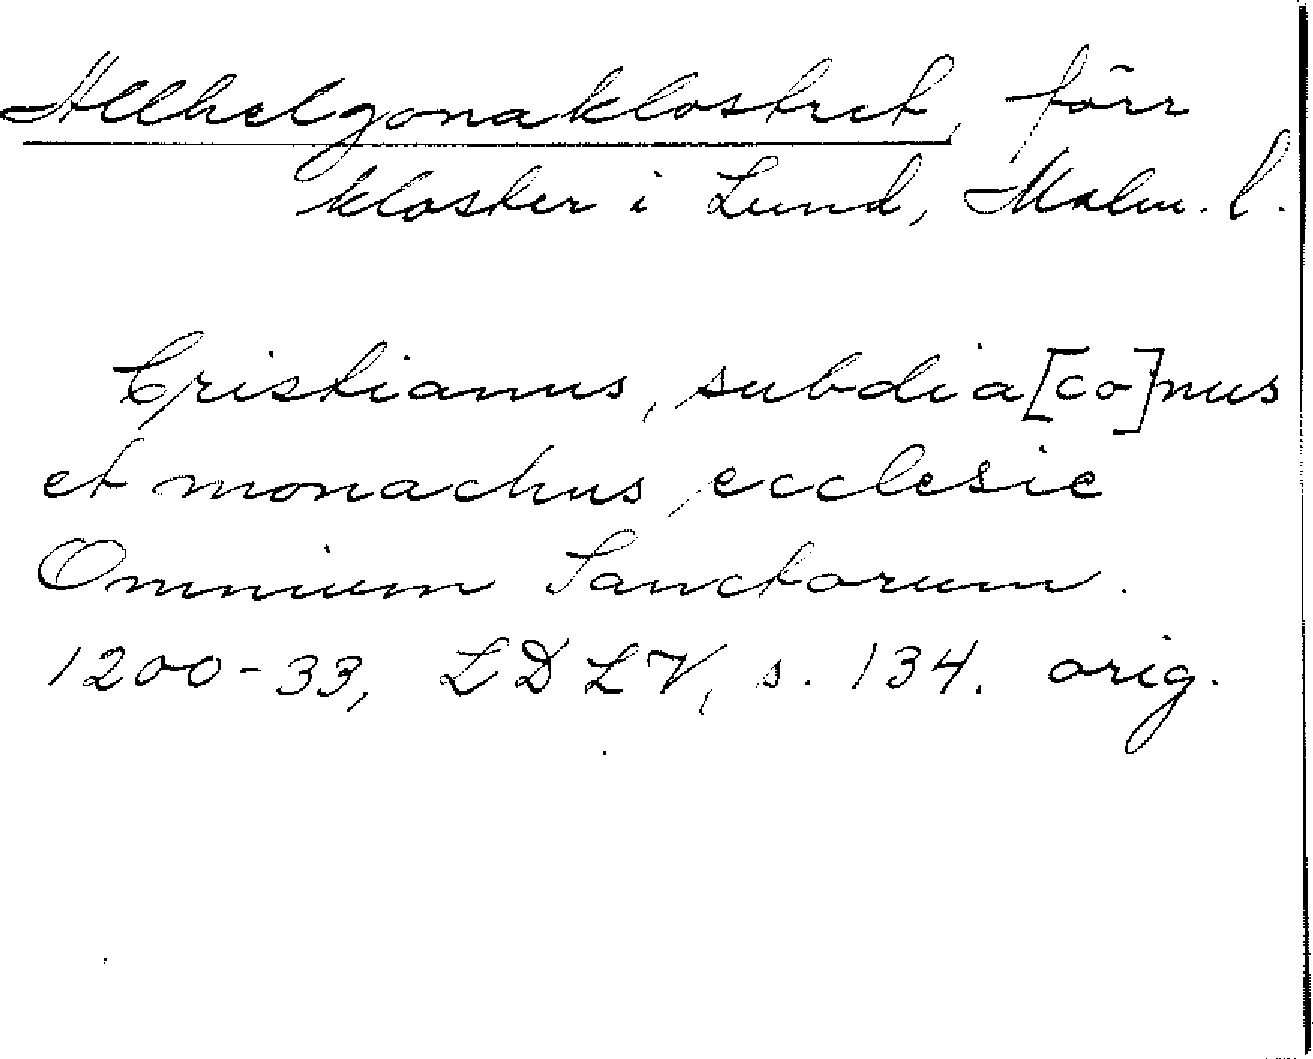 Allhelgonaklostret, förr
kloster i Lund, Malm. l.
Cristianus, subdia[co]nus
et monachus ecclesie
Omnium Sanctorum.
1200-33, LDLV, s. 134. orig.